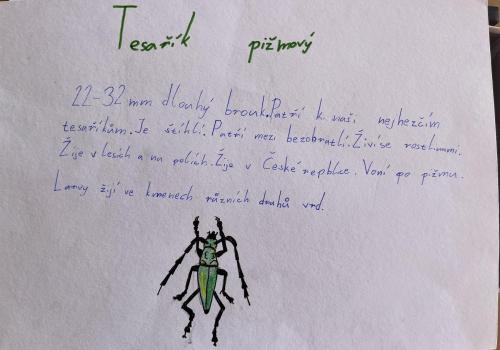 Tesařík pižmový
22-32 mm dlouhý brouk. Patří k naši nejhezčím
tesaříkům. Je štíhlí. Patří mezi bezobratlí. Živí se rostlinami.
Žije v lesích a na polích. Žije v České repblce. Voní po pižmu.
Larvy žijí ve kmenech různích druhů vrd.